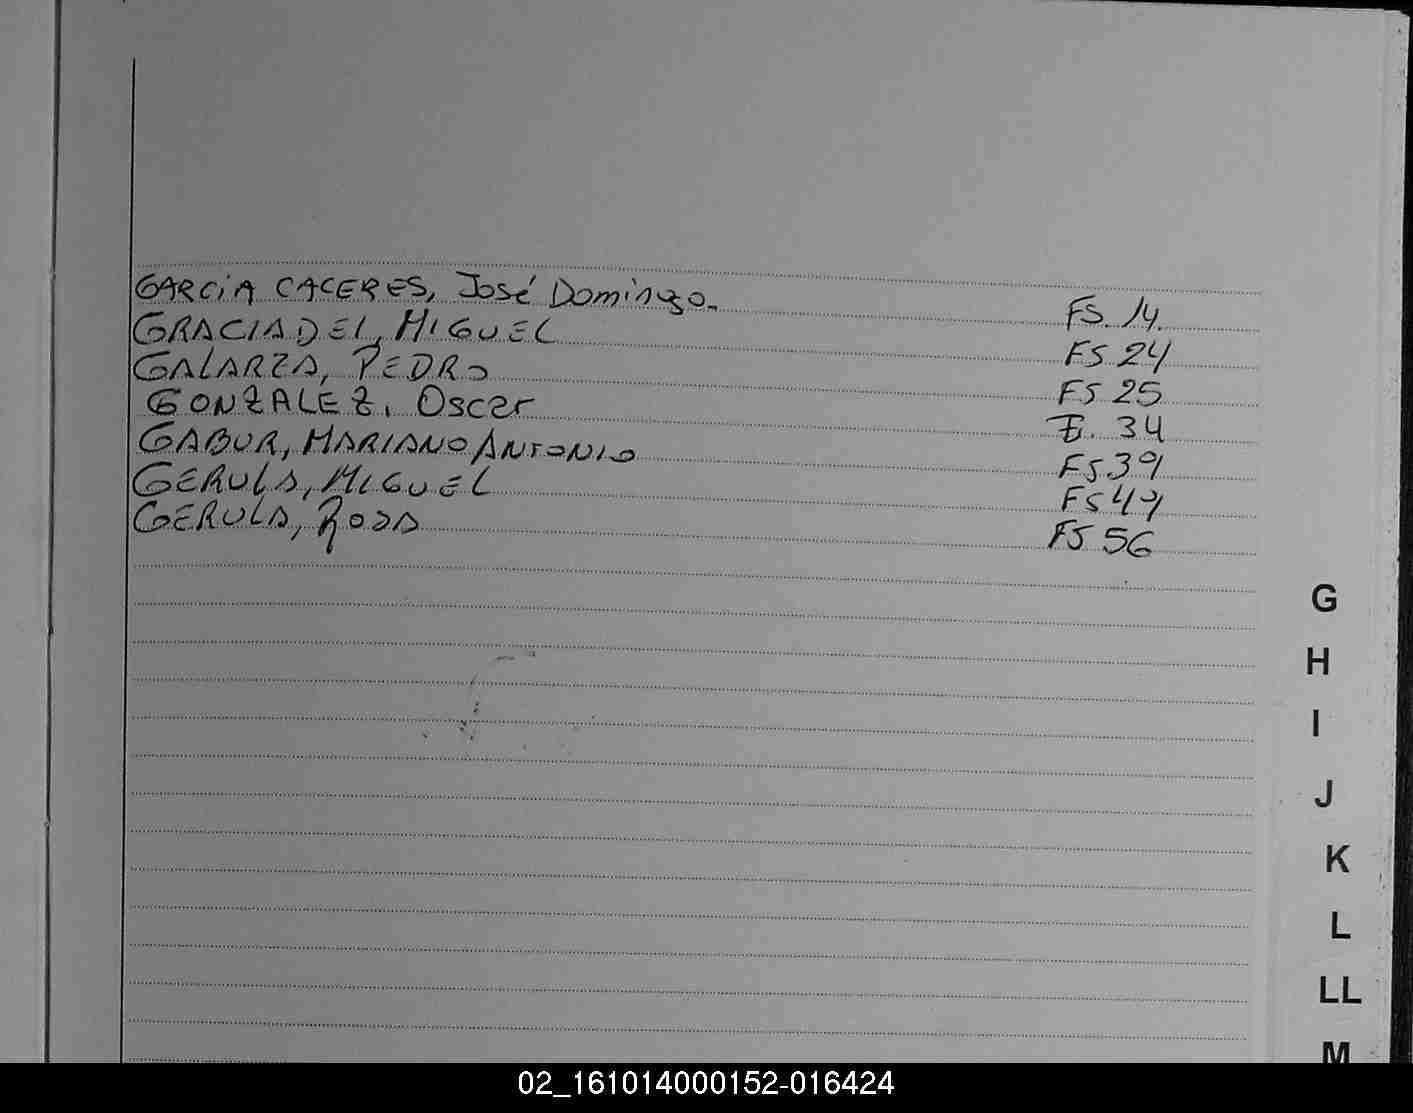 GARCÍA CACERES, José Domingo. FS. 14.
GRACIADEI, MIGUEL FS 24
GALARZA, PEDRO FS 25
GONZALEZ, Oscar FS. 34
GABUR, MARIANO ANTONIO FS 39
GERULA, MIGUEL FS 49
GERULA, ROSA FS 56
G
H
I
J
K
L
LL
M
02_161014000152-016424